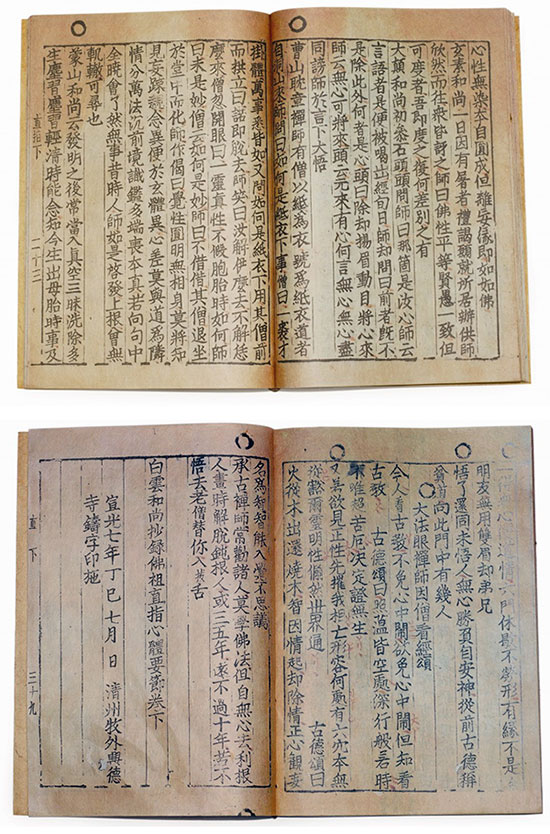 心性無染本自圓成但離妄緣即如如佛
玄素和尚一日因有屠者禮謁頭就所居辦供師
欣然而往衆皆訝之師曰佛性平等賢愚一致但
可度者吾即度之復何差別之有
大顚和尚初叅石頭頭問師曰那箇是汝心師云
言語者是便被喝出經旬日師却問曰前者旣不
是除此外何者是心頭曰除却揚眉動目將心來
師云無心可將來頭云元來有心何言無心無心盡
同謗師於言下大悟
曹山耽章禪師有僧以紙爲衣號爲紙衣道者
自洞山來師問曰如何是紙衣下事僧曰一裘才
掛體萬事悉皆如又問如何是紙衣下用其僧前
而拱立曰諾即脫去師笑曰汝解伊麽去不解恁
麽來僧忽開眼曰一靈眞性不假胞胎時如何師
曰未是妙僧云如何是妙師曰不借借其僧退坐
於堂中而化師作偈曰覺性圓明無相身莫將知
見妄踈親念異便於玄體異心差莫與道爲隣
情分萬法沉前境識鑑多端喪本眞若向句中
全曉會了然無事昔時人師如是啓發上根曾無
軌轍可尋也
蒙山和尚云發明之後常當入眞空三昧洗除多
生塵習塵習輕淸時能念却今生出母胎時事及
直指下 二十三
情六門休不勞形有緣不是
明友無用雙眉却弟兄
悟了還同未悟人無心勝負自安神從前古德稱
貧道向此門中有幾人
大法眼禪師因僧看經頌
今人看古敎不免心中鬧欲免心中鬧但知看
古敎 古德頌曰照蘊皆空處深行般若時
不唯超苦厄決定證無生
若欲見正性先摧我相亡形容何處有六穴本無
從歇爾靈明性儼然世界通 古德頌曰
火從木出還燒木智因情起却除情正心觀妄
名爲智智能入空不思議
承古禪師常勸諸人莫學佛法但自無心去利根
人晝時解脫鈍根人或三五年遠不過十年若不
悟去老僧替你入拔舌
白雲和尚抄錄佛祖直指心體要節卷下
宣光七年丁巳七月 日 淸州牧外興德
寺鑄字印施
直下 三十九